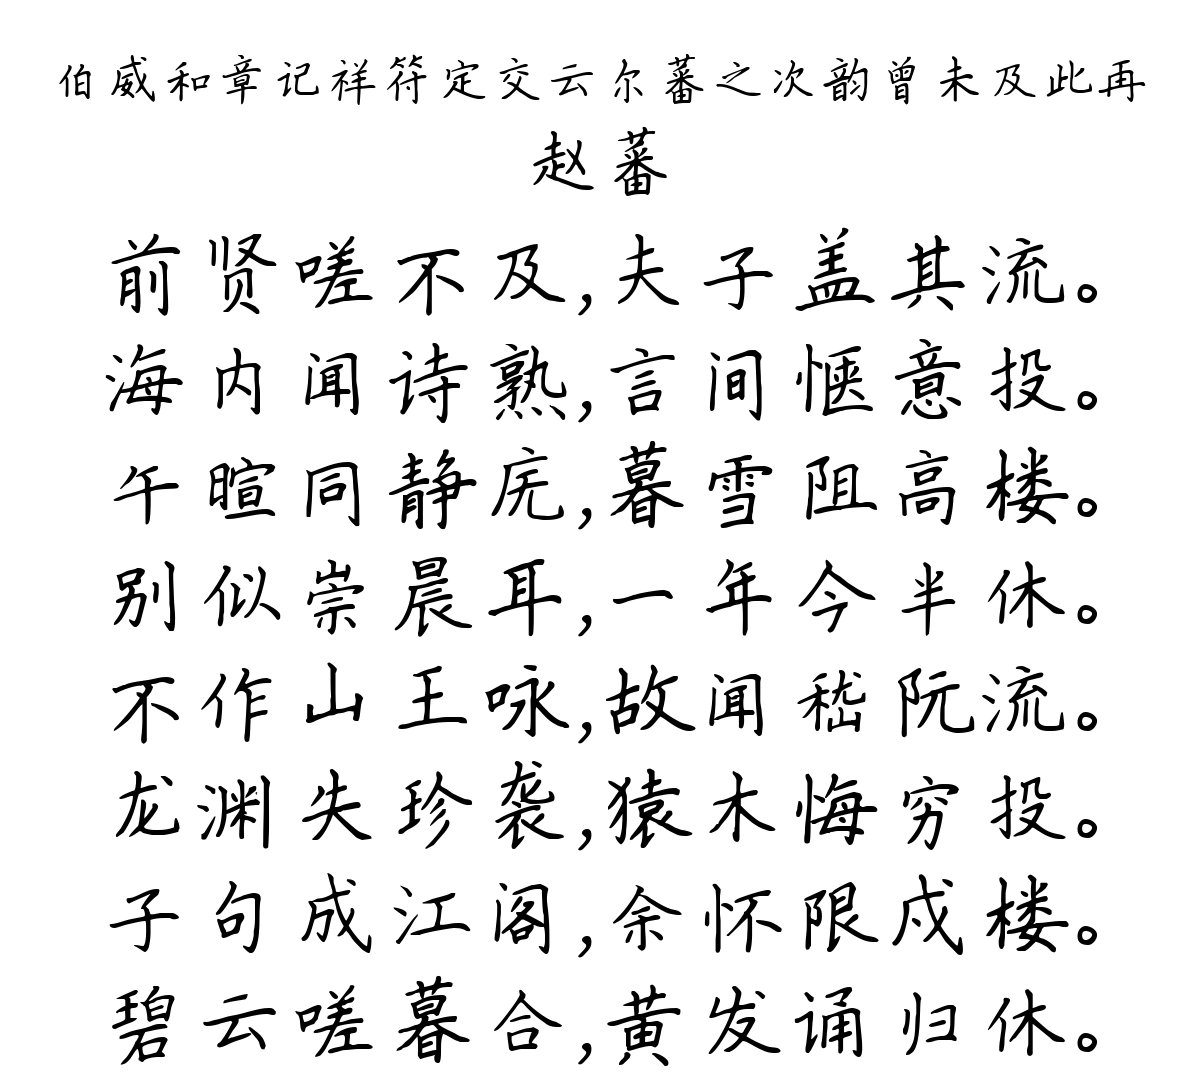 伯威和章记祥符定交云尔蕃之次韵曾未及此再
赵蕃
前贤嗟不及,夫子盖其流。
海内闻诗熟,言间惬意投。
午暄同静庑,暮雪阻高楼。
别似崇晨耳,一年今半休。
不作山王咏,故闻嵇阮流。
龙渊失珍袭,猿木悔穷投。
子句成江阁,余怀限戍楼。
碧云嗟暮合,黄发诵归休。